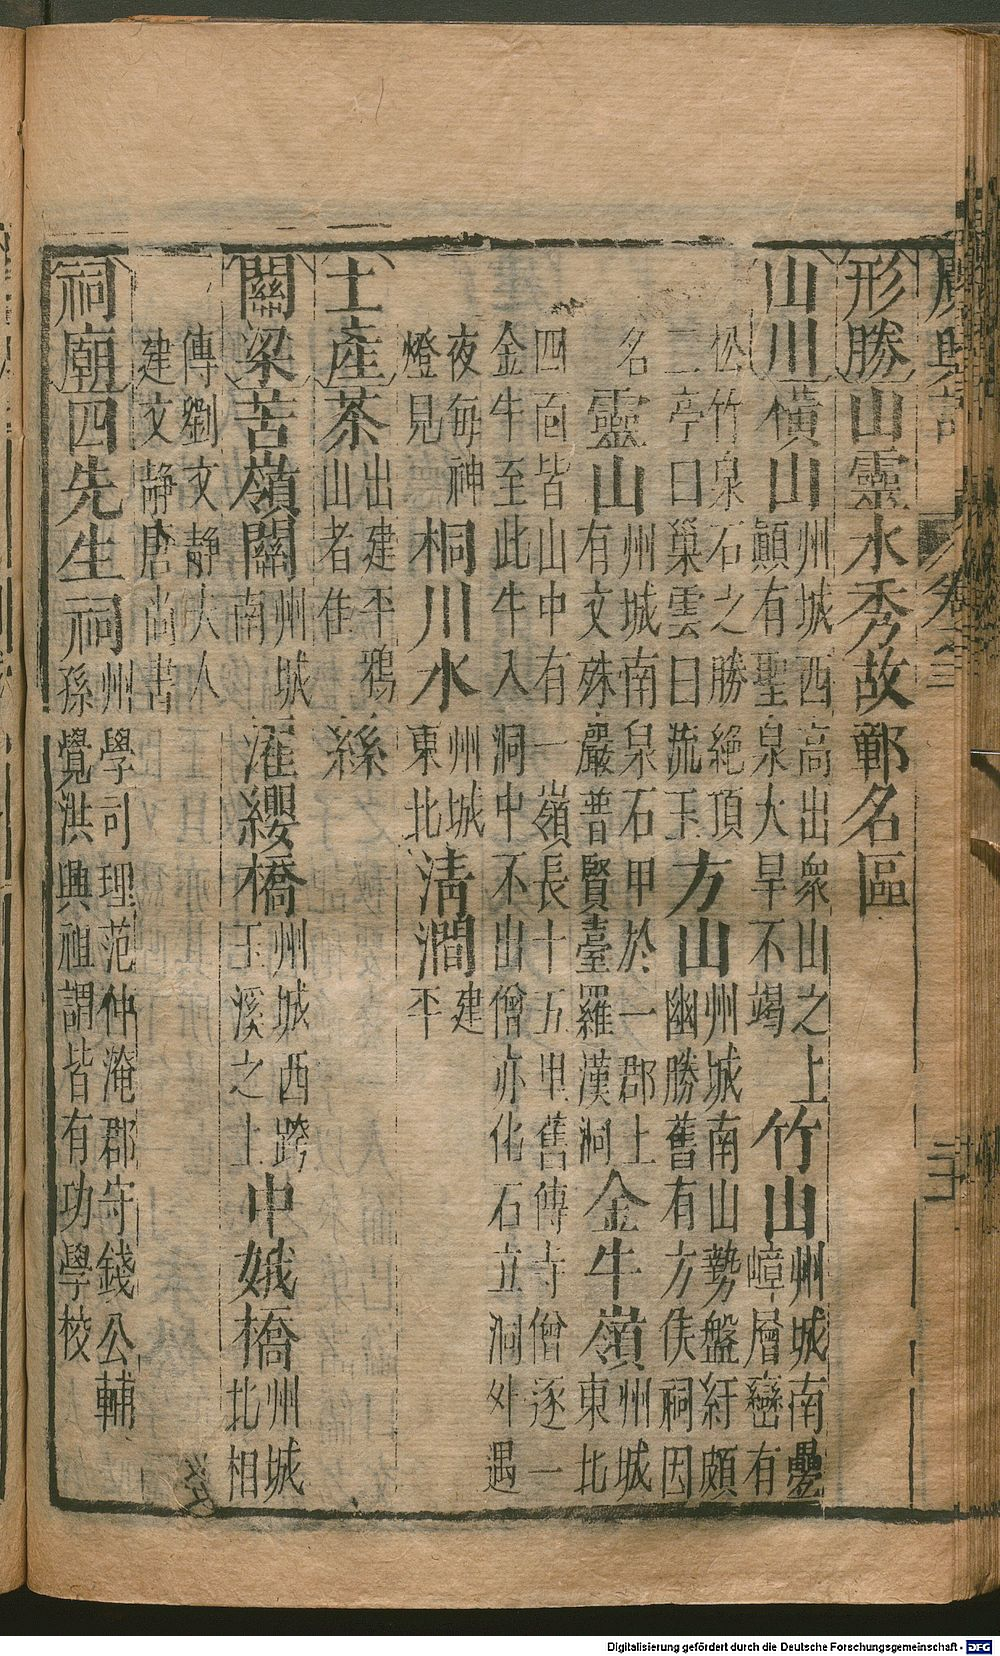 廣輿記 卷之三
形勝山靈水秀故鄣名區
山川橫山州城西高出衆山之上顛有聖泉大旱不竭竹山州城南疊嶂層巒有
松竹泉石之勝絕頂二亭曰巢雲曰流玉方山州城南山勢盤紆頗幽勝舊有方侯祠因
名靈山州城南泉石甲於一郡上有文殊嚴普賢臺羅漢洞金牛嶺州城東北
四面皆山中有一嶺長十五里舊傳寺僧逐一
金牛至此牛入洞中不出僧亦化石立洞外遇
夜每神燈見桐川水州城東北清澗建平
土產茶出建平鴉山者佳絲
關梁苦嶺關州城南濯纓橋州城西跨玉溪之上中娥橋州城北相
傳劉文靜夫人建文靜唐尚書
祠廟四先生祠州學司理范仲淹郡守錢公輔孫覺洪興祖謂皆有功學校
Digitalisierung gefördert durch die Deutsche Forschungsgemeinschaft - DFG